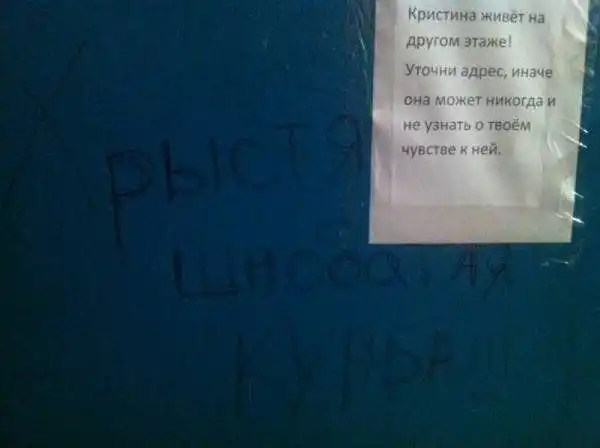 Кристина живёт на
другом этаже!
Уточни адрес, иначе
она может никогда и
не узнать о твоём
чувстве к ней.
РЫСТЯ